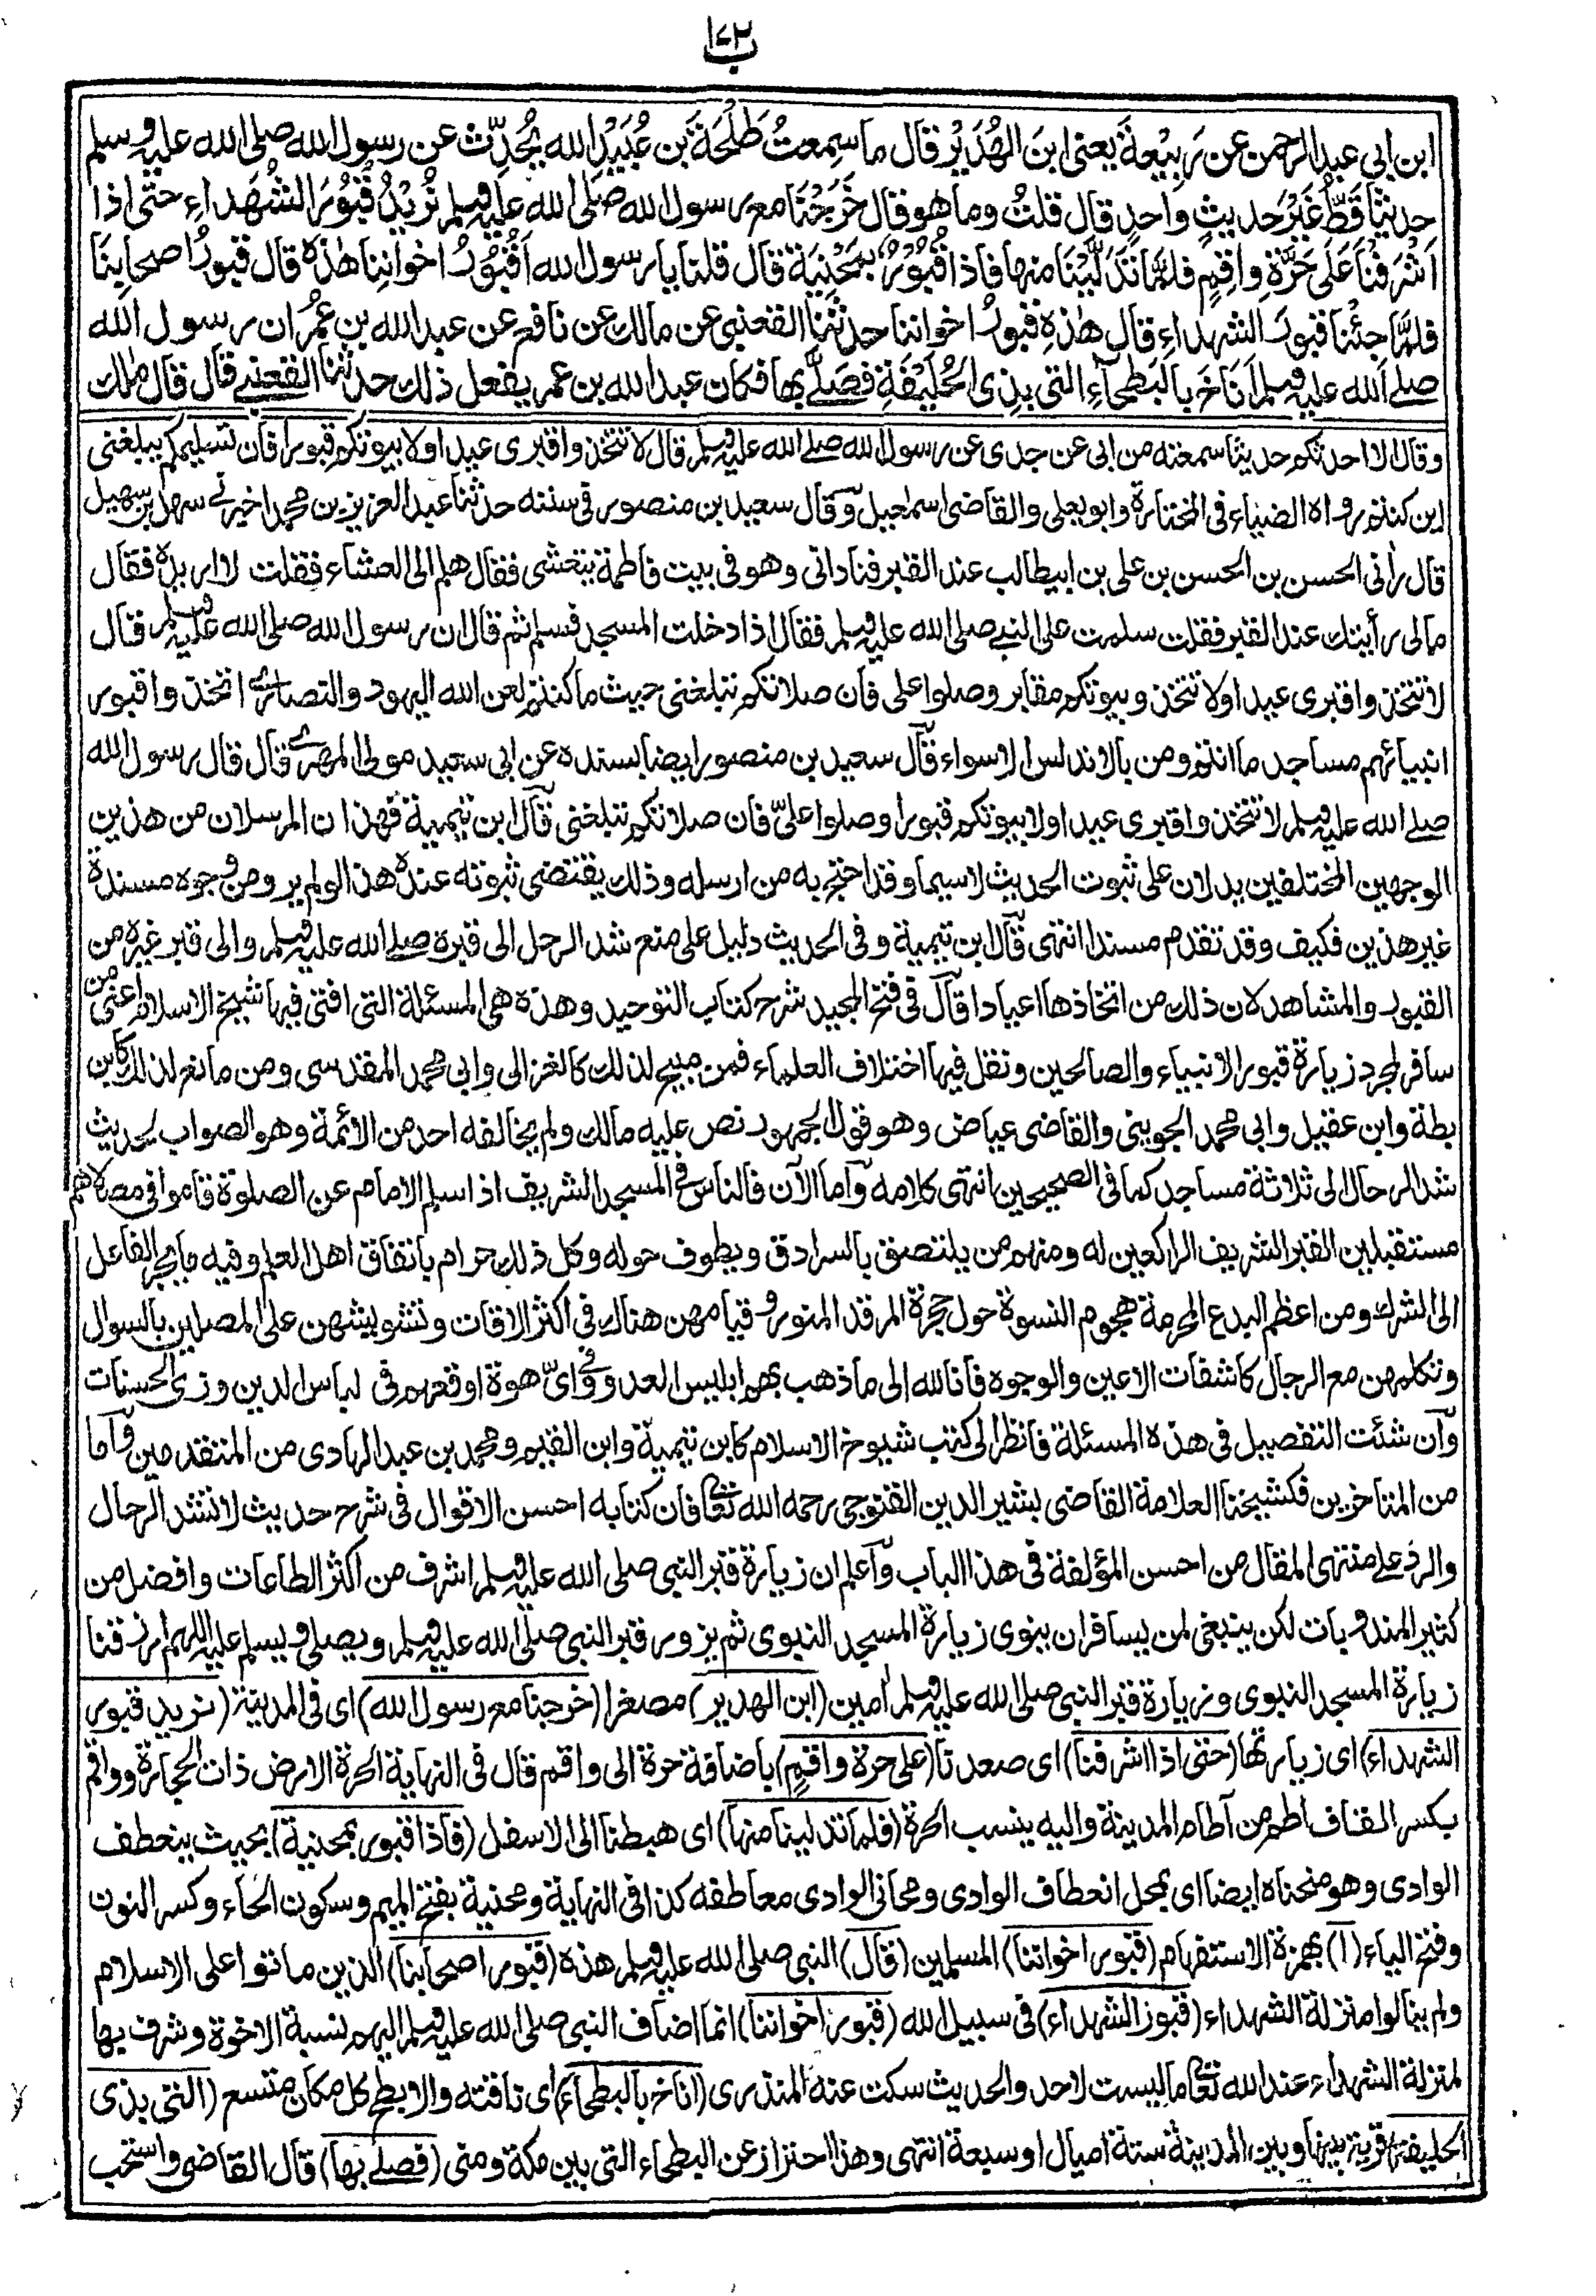 ١٧٢
ب
ابن ابى عبد الرحمن عن رَبِيْعةَ يعنى ابنَ الهُدَيْرِ قال ما سِمعتُ طَلْحَةَ بن عُبَيْدِ الله يُحَدِّث عن رسول الله صلى الله عليه وسلم
حديثًا قَطُّ غَيْرَ حديثٍ واحدٍ قال قلتُ وما هو قال خَرَجْنَا مع رسول الله صلى الله عليه وسلم نُرِيْدُ قُبُوْرَ الشُهَداءِ حتّى اذا
اَشْرَفْنَا عَلَى حَرَّةِ واقِمٍ فلمَّا تَدَلَّيْنَا منها فاذا قُبُوْرٌ بِمَحْنِيَةٍ قال قلنا يا رسول الله اَقُبُوْرُ اخوانِنا هٰذه قال قبورُ اصحابِنَا
فلمَّا جِئْنا قبورَ الشهداءِ قال هٰذِهِ قبورُ اخواننا حدثنا القعنبى عن مالك عن نافع عن عبد الله بن عُمَرَ ان رسول الله
صلى الله عليه وسلم اَنَاخَ بالبَطْحآءِ التى بِذِى الحُلَيْفَةِ فصَلَّى بها فكان عبد الله بن عمر يفعل ذلك حدثنا القعنبى قال قال مالك
وقال الا احدثكم حديثا سمعته من ابى عن جدى عن رسول الله صلى الله عليه وسلم قال لا تتخذوا قبرى عيدا ولا بيوتكم قبورا فان تسليمكم يبلغنى
اين كنتم رواه الضياء فى المختارة وابو يعلى والقاضى اسمعيل وقال سعيد بن منصور فى سننه حدثنا عبد العزيز بن محمد اخبرنى سهل بن سهيل
قال رأنى الحسن بن الحسن بن على بن ابيطالب عند القبر فنادانى وهو فى بيت فاطمة يتعشى فقال هلم الى العشاء فقلت لا اريده فقال
مالى رأيتك عند القبر فقلت سلمت على النبى صلى الله عليه وسلم فقال اذا دخلت المسجد فسلم ثم قال ان رسول الله صلى الله عليه وسلم قال
لا تتخذوا قبرى عيدا ولا تتخذوا بيوتكم مقابر وصلوا على فان صلاتكم تبلغنى حيث ما كنتم لعن الله اليهود والنصارى اتخذوا قبور
انبيائهم مساجد ما انتم ومن بالاندلس الا سواء قال سعيد بن منصور ايضا بسنده عن ابى سعيد مولى المهرى قال قال رسول الله
صلى الله عليه وسلم لا تتخذوا قبرى عيدا ولا بيوتكم قبورا وصلوا علىّ فان صلاتكم تبلغنى قال ابن تيمية فهذان المرسلان من هذين
الوجهين المختلفين يدلان على ثبوت الحديث لاسيما وقد احتج به من ارسله وذلك يقتضى ثبوته عنده هذا لو لم يرو من وجوه مسندة
غير هذين فكيف وقد تقدم مسندا انتهى قال ابن تيمية وفى الحديث دليل على منع شد الرحل الى قبره صلى الله عليه وسلم والى قبر غيره من
القبور والمشاهد لان ذلك من اتخاذها اعيادا قال فى فتح المجيد شرح كتاب التوحيد وهذه هى المسئلة التى افتى فيها شيخ الاسلام اعنى من
سافر لمجرد زيارة قبور الانبياء والصالحين ونقل فيها اختلاف العلماء فمن مبيح لذلك كالغزالى وابى محمد المقدسى ومن مانع لذلك كابن
بطة وابن عقيل وابى محمد الجوينى والقاضى عياض وهو قول الجمهور نص عليه مالك ولم يخالفه احد من الائمة وهو الصواب لحديث
شد الرحال الى ثلاثة مساجد كما فى الصحيحين انتهى كلامه واما الآن فالناس فى المسجد الشريف اذا سلم الامام عن الصلوة قاموا فى مصلاهم
مستقبلين القبر الشريف الراكعين له ومنهم من يلتصق بالسرادق ويطوف حوله وكل ذلك حرام باتفاق اهل العلم وفيه ما يجر الفاعل
الى الشرك ومن اعظم البدع المحرمة هجوم النسوة حول حجرة المرقد المنور وقيامهن هناك فى اكثر الاقات وتشويشهن على المصلين بالسوال
وتكلمهن مع الرجال كاشفات الاعين والوجوه فانا لله الى ما ذهب بهم ابليس العدو وفى اىّ هوة اوقعهم فى لباس الدين وزى الحسنات
وان شئت التفصيل فى هذه المسئلة فانظر الى كتب شيوخ الاسلام كابن تيمية وابن القيم ومحمد بن عبد الهادى من المتقدمين واما
من المتاخرين فكشيخنا العلامة القاضى بشير الدين القنوجى رحمه الله تعالى فان كتابه احسن الاقوال فى شرح حديث لا تشد الرحال
والرد على منتهى المقال من احسن المؤلفة فى هذا الباب واعلم ان زيارة قبر النبى صلى الله عليه وسلم اشرف من اكثر الطاعات وافضل من
كثير المندوبات لكن ينبغى لمن يسافر ان ينوى زيارة المسجد النبوى ثم يزور قبر النبى صلى الله عليه وسلم ويصلى ويسلم عليه اللهم ارزقنا
زيارة المسجد النبوى وزيارة قبر النبى صلى الله عليه وسلم اٰمين (ابن الهدير) مصغرا (خرجنا مع رسول الله) اى فى المدينة (نريد قبور
الشهداء) اى زيارتها (حتى اذا اشرفنا) اى صعدنا (على حرة واقمٍ) باضافة حرة الى واقم قال فى النهاية الحرة الارض ذات الحجارة وواقم
بكسر القاف اطم من آطام المدينة واليه ينسب الحرة (فلما تدلينا منها) اى هبطنا الى الاسفل (فاذا قبور بمحنية) بحيث ينعطف
الوادى وهو منحناه ايضا اى بمحل انعطاف الوادى ومحانى الوادى معاطفه كذا فى النهاية ومحنية بفتح الميم وسكون الحاء وكسر النون
وفتح الياء (ا) بهمزة الاستفهام (قبور اخواننا) المسلمين (قال) النبى صلى الله عليه وسلم هذه (قبور اصحابنا) الذين ماتوا على الاسلام
ولم ينالوا منزلة الشهداء (قبور الشهداء) فى سبيل الله (قبور اخواننا) انما اضاف النبى صلى الله عليه وسلم اليهم نسبة الاخوة وشرف بها
لمنزلة الشهداء عند الله تعالى ما ليست لاحد والحديث سكت عنه المنذرى (اناخ بالبطحاء) اى ناقته والابطح كل مكان متسع (التى بذى
الحليفة) قرية بينها وبين المدينة ستة اميال او سبعة انتهى وهذا احتراز عن البطحاء التى بين مكة ومنى (فصلى بها) قال القاضى واستحب